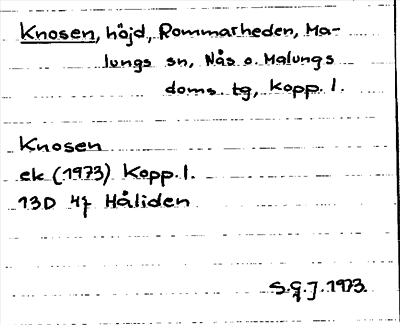 Knosen, höjd, Rommarheden, Ma-
lungs sn, Nås o. Malungs
doms. tg, Kopp. l.
Knosen
ek (1973) Kopp. l.
13D 4f Håliden
S.G.J. 1973.